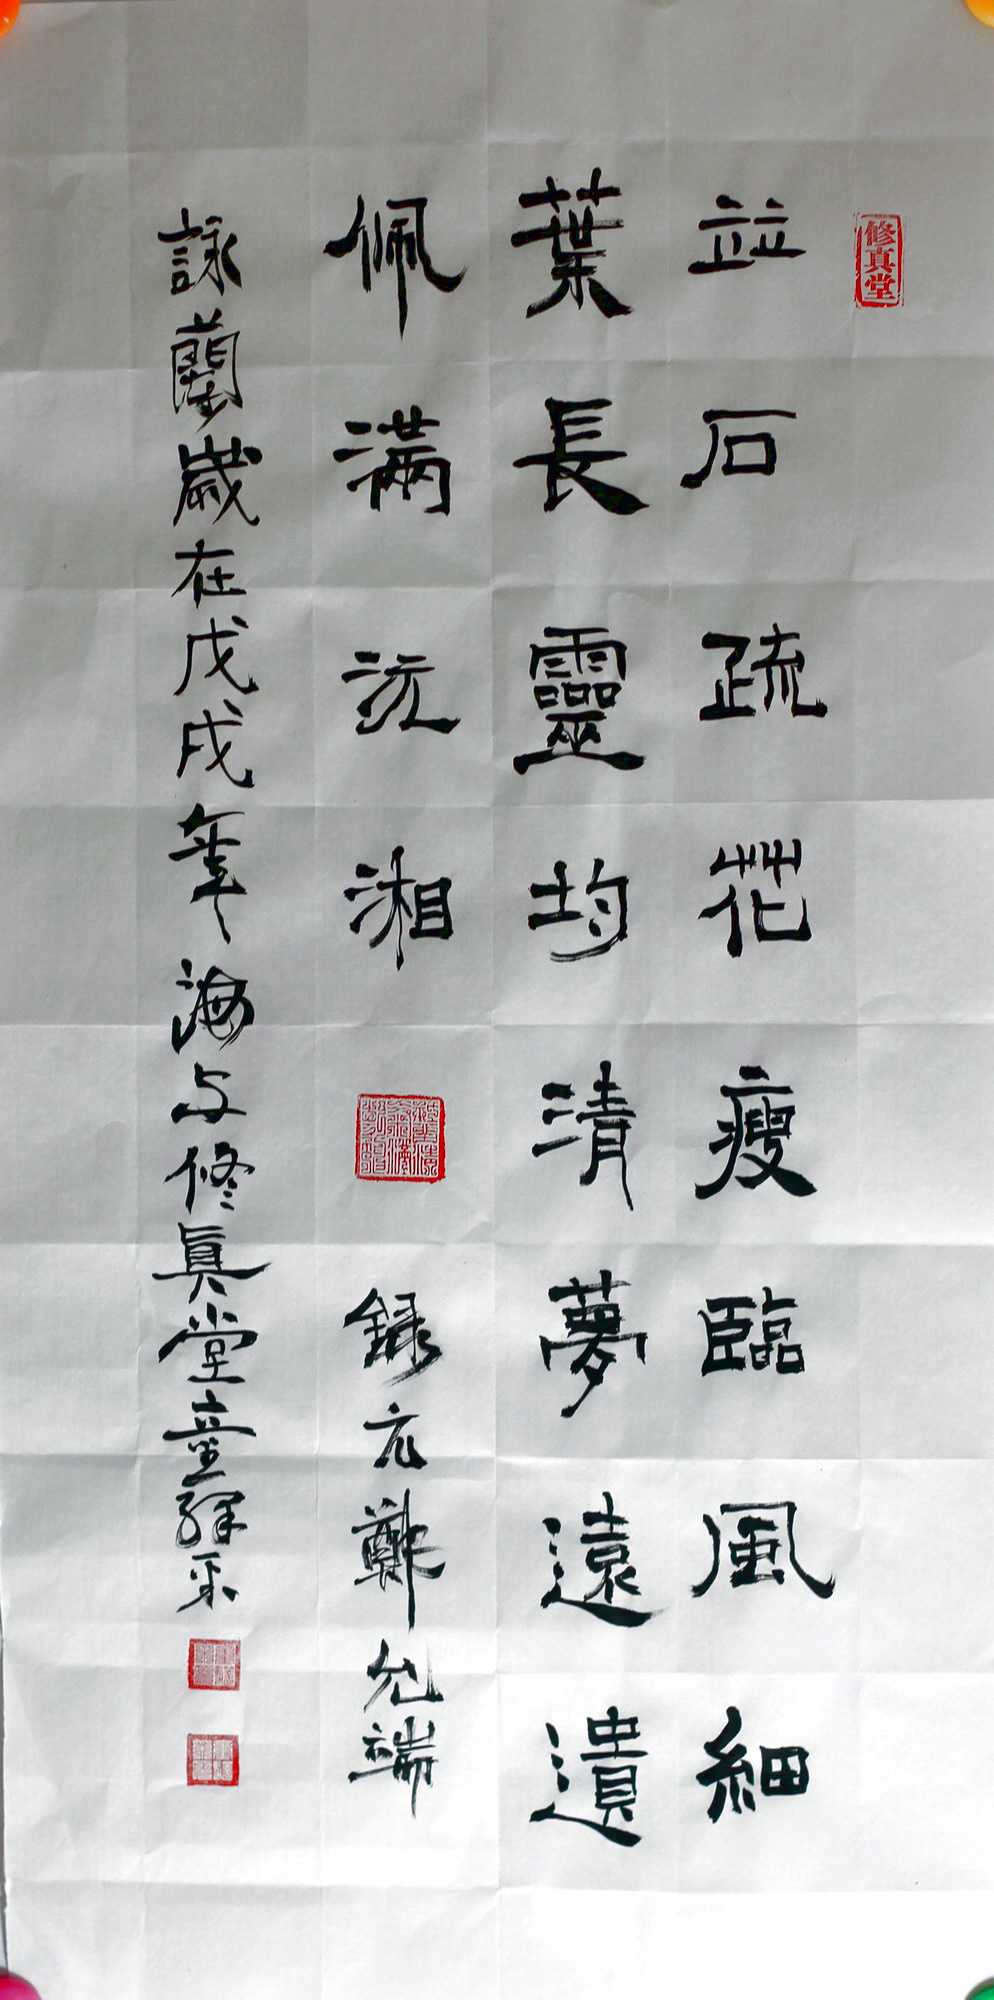 修真堂
竝石疏花瘦臨風細
葉長靈均清夢遠遺
佩滿沅湘 錄元鄭允端
詠蘭歲在戊戌年海与修真堂童繹